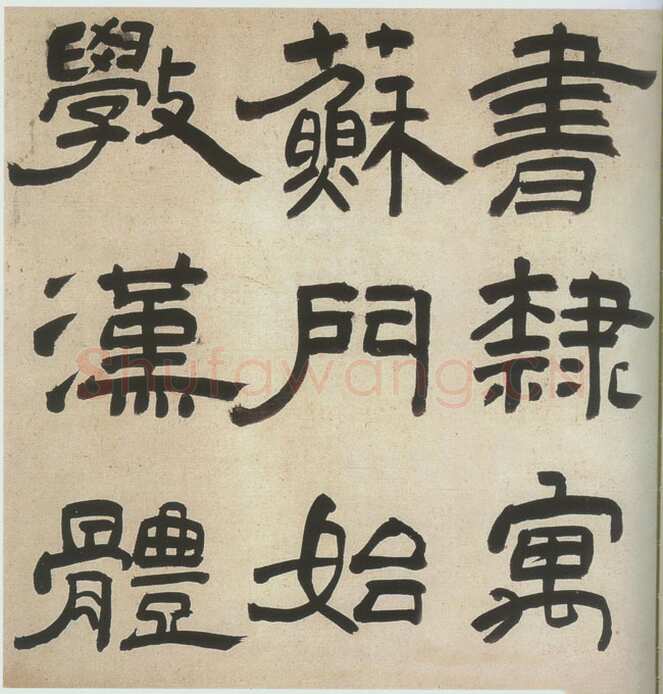 書隷寓
蘇門始
斆漢體
Shufawang.CN